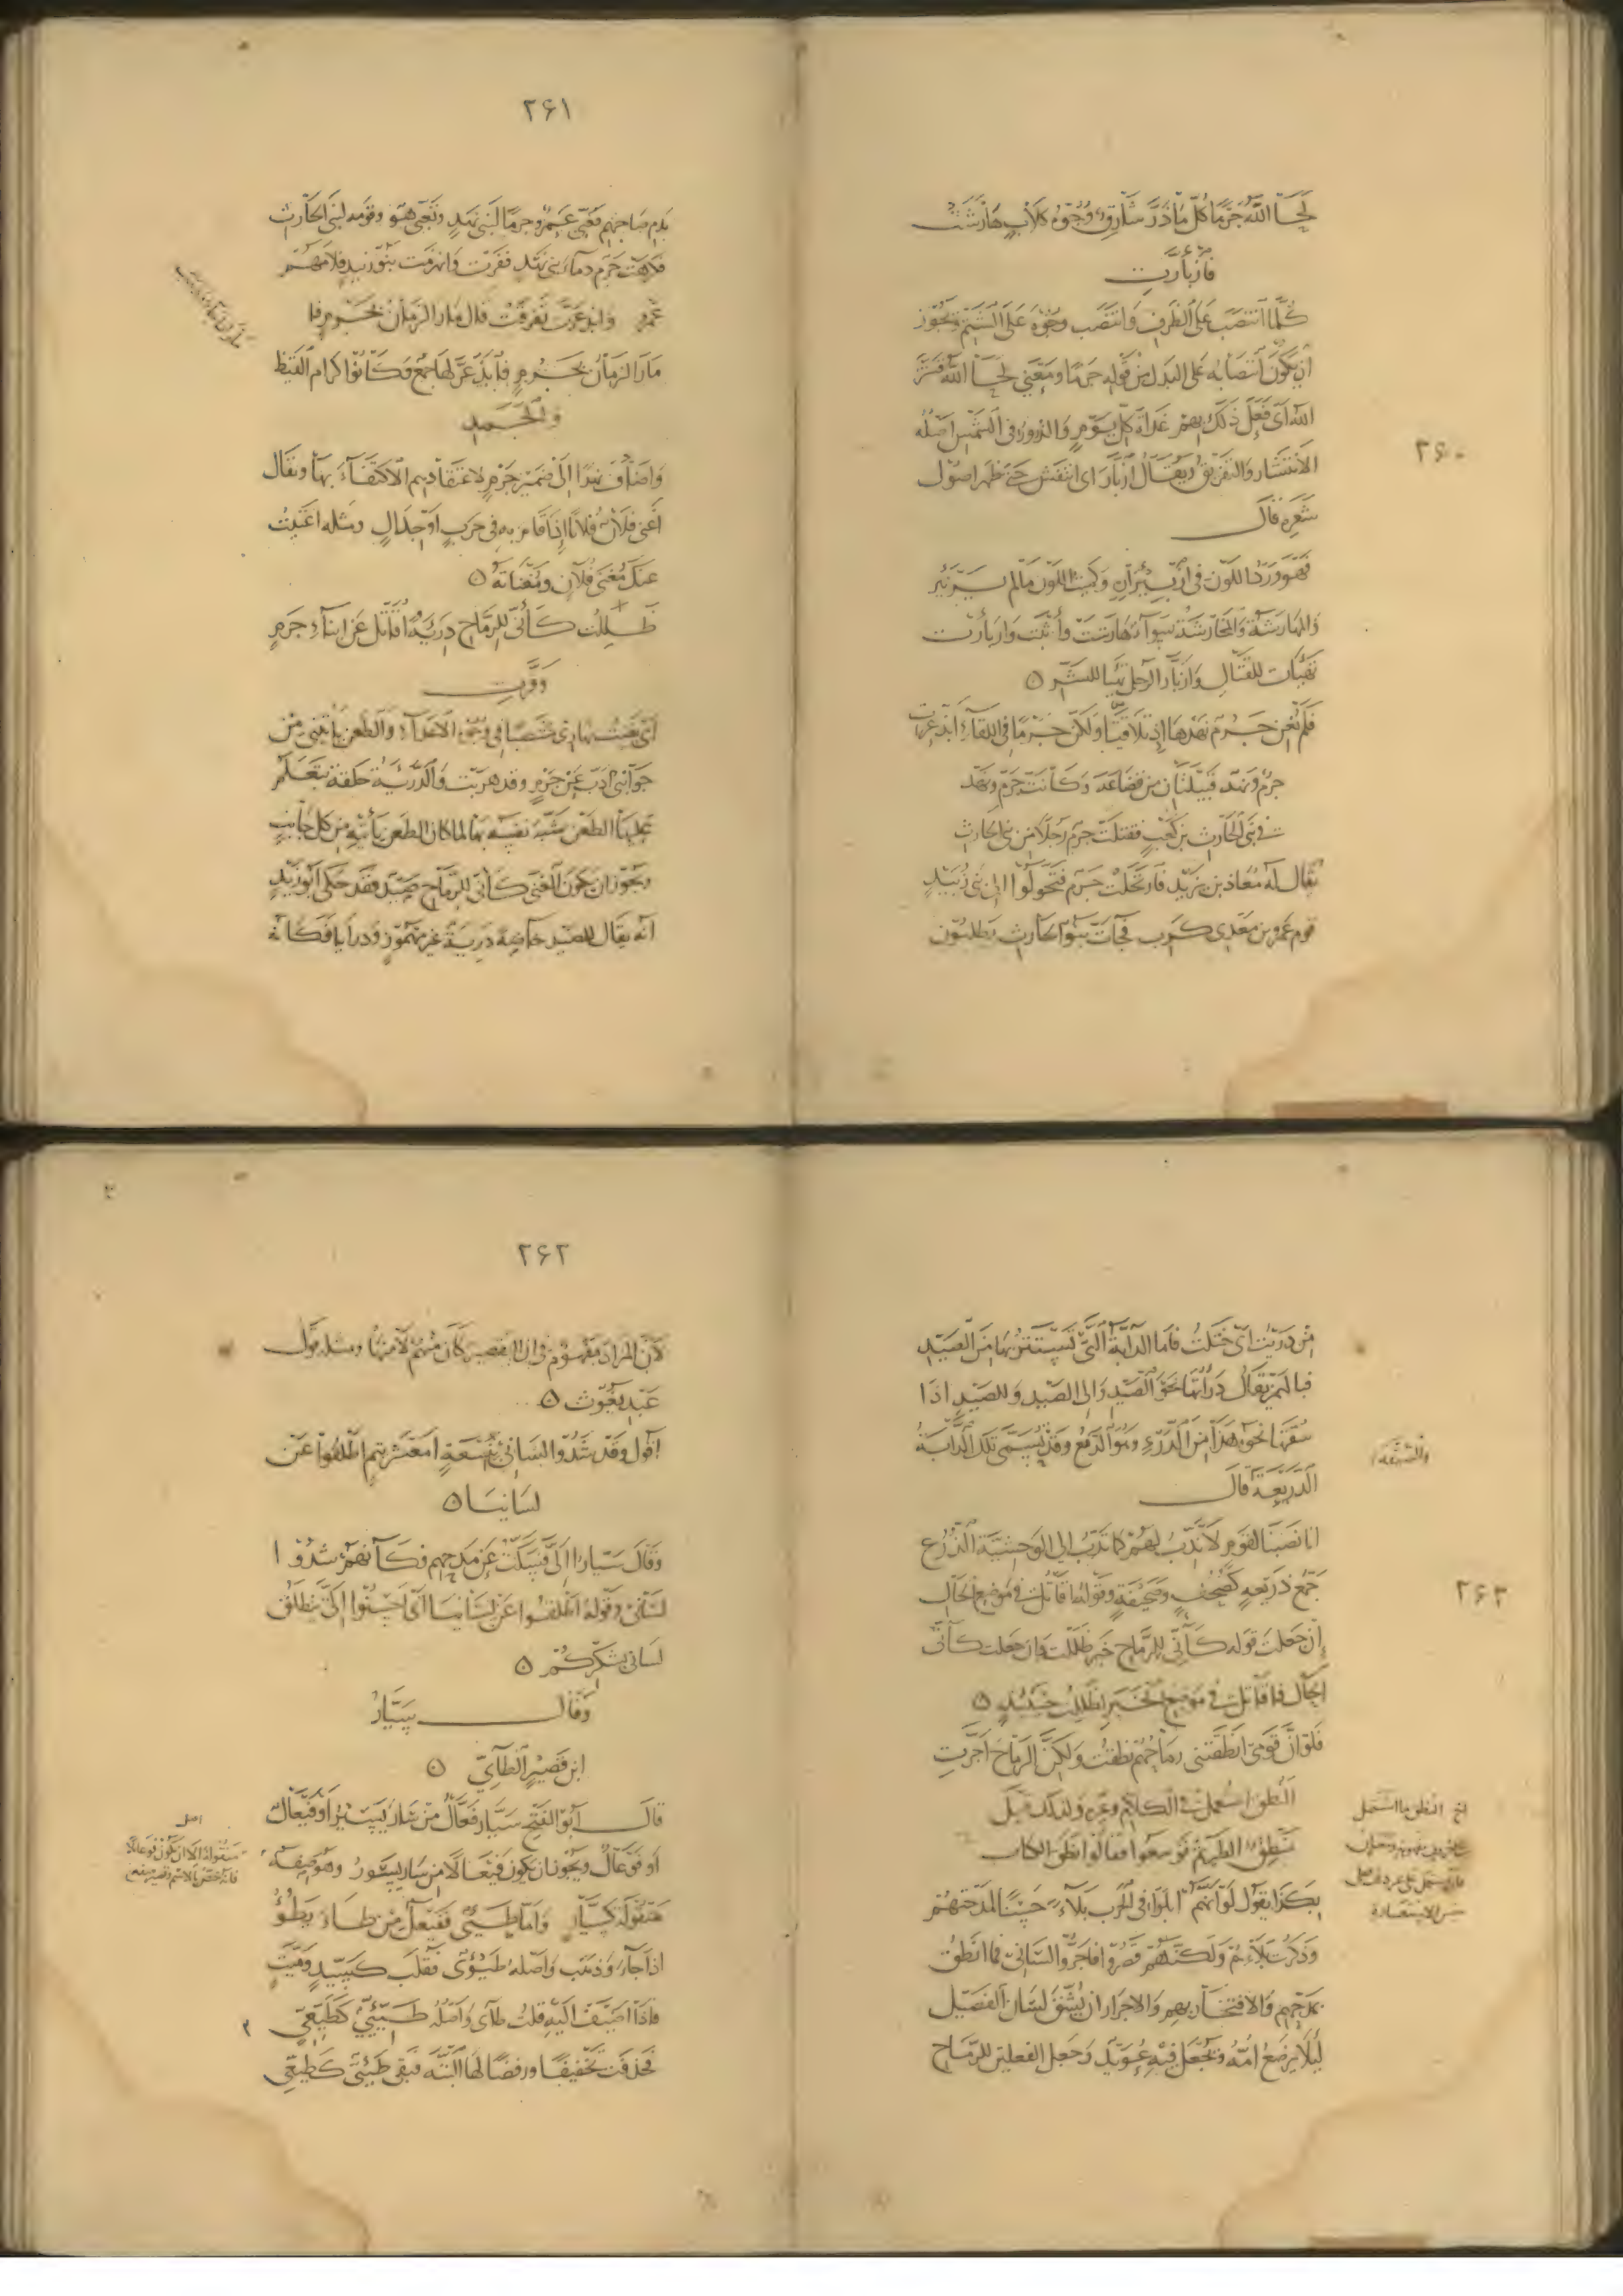 ٢۶٠
لحا الله جرما كل ما ذر شارق وجوه كلاب هارشت
فازبأرت
كلما انتصب على الظرف وانتصب وجوه على الشتم ويجوز
ان يكون انتصابه على البدل من قوله جرما ومعنى لحا الله قشر
الله اى فعل ذلك بهم غداة كل يوم والذرور فى الشمس اصله
الانتشار والتفريق ويقال ازبأر اى انتفش حتى ظهر اصول
شعره قال
فهو ورد اللون فى ازبيراره وكميت اللون ما لم يزبئر
والمهارشة والمحارشة سواء هارشت وأثبت وازبأرت
تهيأت للقتال وازبأر الرجل تهيأ للشر ٥
فلم تغن جرم نهدها اذ تلاقتا ولكن جرما فى اللقاء ابذعرت
جرم ونهد قبيلتان من قضاعة وكانت جرم ونهد
فى بنى الحارث بن كعب فقتلت جرم رجلا من بنى الحارث
يقال له معاذ بن يزيد فارتحلت جرم فتحولوا الى بنى زبيد
قوم عمرو بن معدى كرب فجاءت بنو الحارث يطلبون
٢۶١
بدم صاحبهم فعبى عمرو جرما لبنى نهد وتعبى هو وقومه لبنى الحارث
فكرهت جرم دماء بنى نهد ففرت وانهزمت بنو زبيد فلامهم
عمرو وابذعرت تفرقت قال مار الزمان بجرم فا
مار الزمان بجرم فابذعر لها جمع وكانوا كرام القيظ
والجمد
واضاف نهدا الى ضمير جرم لاعتقادهم الاكتفاء بها ويقال
أغنى فلان فلانا اذا قام به فى حرب او جدال ومثله اغنيت
عنك مغنى فلان ومغناته ٥
ظللت كأنى للرماح دريئة اقاتل عن ابناء جرم
وفرت
اى بقيت نهارى منتصبا فى وجوه الاعداء والطعن يأتينى من
جوانبى اذب عن جرم وقد هربت والدريئة حلقة يتعلم
عليها الطعن شبه نفسه بها لما كان الطعن يأتيه من كل جانب
ويجوز ان يكون المعنى كأنى للرماح صيد فقد حكى ابو زيد
انه يقال للصيد خاصة درية غير مهموز ودرايا فكأنه
٢۶٣
من دريت اى ختلت فاما الدابة التى تستتر بها من الصيد
فبالهمز يقال درأتها نحو الصيد والى الصيد وللصيد اذا
سقتها نحوه هذا من الدرء وهو الدفع وقد يسمى تلك الدابة
الدريعة قال
انا نصبنا لقوم لا ندب لهم كما تدب الى الوحشية الذرع
جمع ذريعة كصحف وصحيفة وقوله اقاتل فى موضع الحال
ان جعلت قوله كأنى للرماح خبر ظللت وان جعلت كأنى
الحال فاقاتل فى موضع الخبر لظللت حينئذ ٥
فلو ان قومى انطقتنى رماحهم نطقت ولكن الرماح اجرت
النطق استعمل فى الكلام وغيره ولذلك قيل
منطق الطير ثم توسعوا فقالوا نطق الكتاب
بكذا يقول لو انهم ابلوا فى الحرب بلاء حسنا لمدحتهم
وذكرت بلاءهم ولكنهم قصروا فاجروا لسانى فما انطق
بمدحهم والافتخار بهم والاجرار ان يشق لسان الفصيل
لئلا يرضع امه ويجعل فيه عويد وجعل الفعلين للرماح
٢۶٢
لان المراد مفهوم فى ان التقصير كان منهم لا منها ومثله قول
عبد يغوث ٥
اقول وقد شدوا لسانى بنسعة أمعشر تيم اطلقوا عن
لسانيا ٥
وقال سياروا الى فسكت عن مدحهم فكأنهم شدوا
لسانى وقوله اطلقوا عن لسانيا اى احسنوا الى ينطلق
لسانى بشكركم ٥
وقال سيار
ابن قصير الطائى ٥
قال ابو الفتح سيار فعال من سار يسير او فيعال
او فوعال ويجوز ان يكون فيعالا من سار يسور وهو صفة
منقولة كسيار واما طيئ ففيعل من طاء يطوء
اذا جاء وذهب واصله طيوئ فقلب كسيد وميت
فاذا اضيف اليه قلت طائى واصله طيئى كطيعى
فحذفت تخفيفا ورفضا لها البتة فبقى طيئى كطيعى